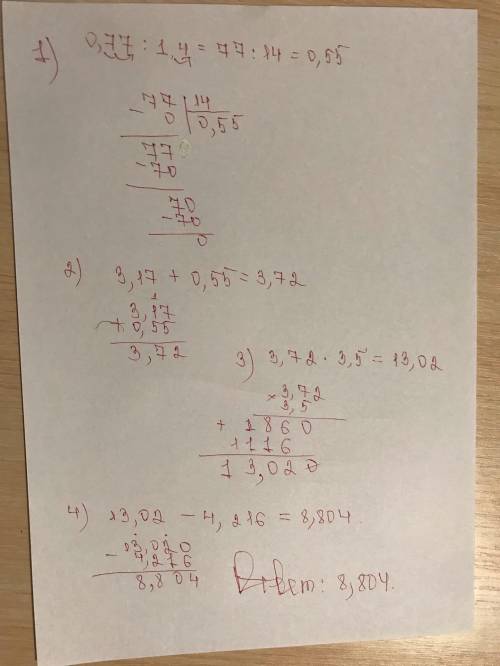 1) 0,77 : 1,4 = 77 : 14 = 0,55
- 77 | 14
0 | 0,55
- 77
70
- 70
70
0
2) 3,17 + 0,55 = 3,72
1
+ 3,17
0,55
3,72
3) 3,72 · 3,5 = 13,02
× 3,72
3,5
+ 1860
1116
13,020
4) 13,02 - 4,216 = 8,804
- 13,020
4,216
8,804
Ответ: 8,804.